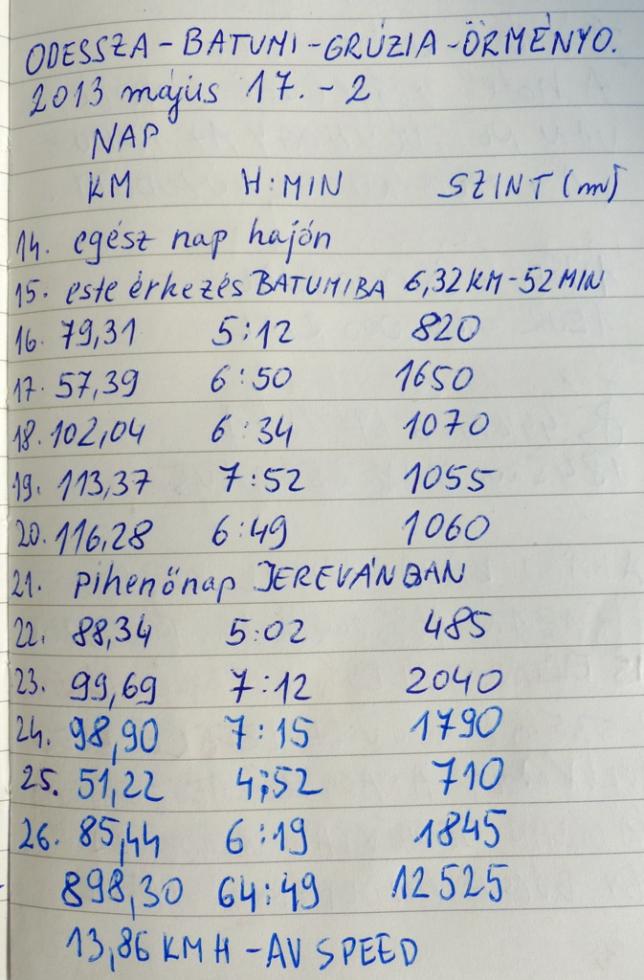 ODESSZA - BATUMI - GRÚZIA - ÖRMÉNYO.
2013 május 17. - 2
NAP
KM H:MIN SZINT (m)
14. egész nap hajón
15. este érkezés BATUMIBA 6,32 KM - 52 MIN
16. 79,31 5:12 820
17. 57,39 6:50 1650
18. 102,04 6:34 1070
19. 113,37 7:52 1055
20. 116,28 6:49 1060
21. pihenőnap JEREVÁNBAN
22. 88,34 5:02 485
23. 99,69 7:12 2040
24. 98,90 7:15 1790
25. 51,22 4:52 710
26. 85,44 6:19 1845
898,30 64:49 12525
13,86 KM H - AV SPEED